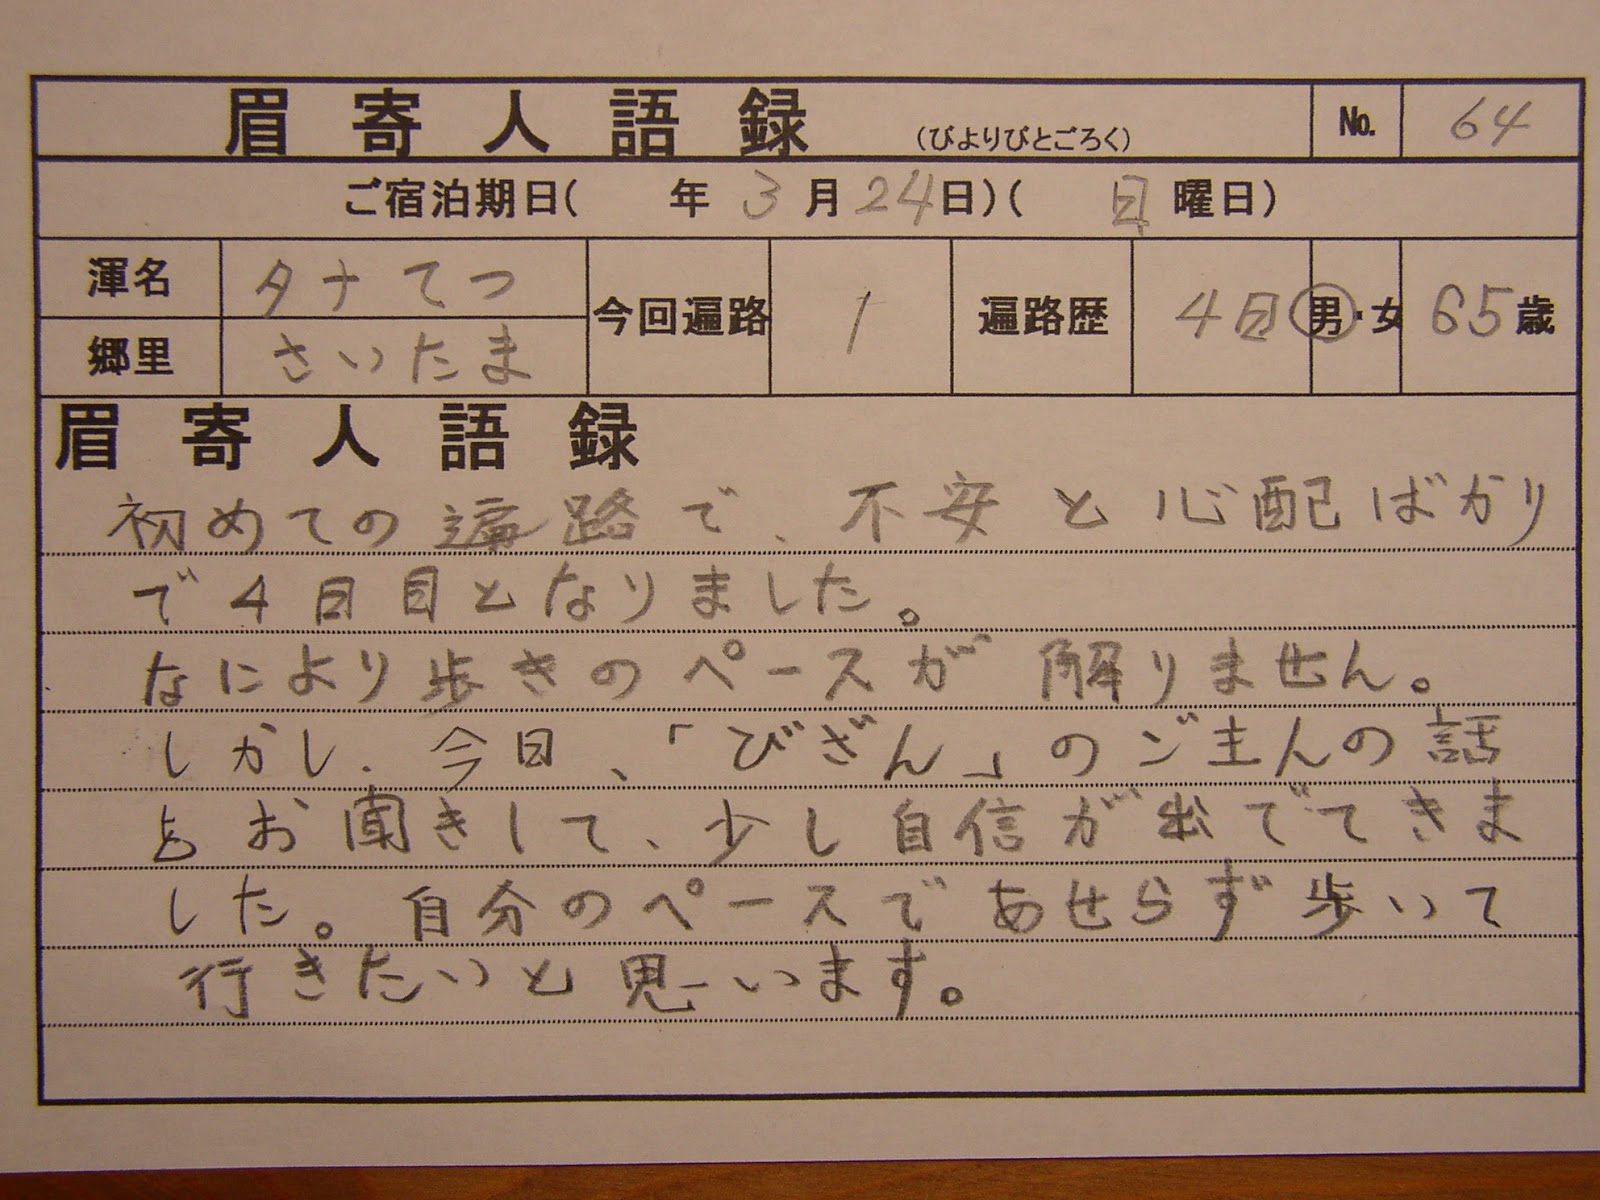 眉寄人語録 (びよりびとごろく) No. 64
ご宿泊期日( 年 3 月 24 日)( 日 曜日)
渾名 タナてつ 今回遍路 1 遍路歴 4日 男・女 65歳
郷里 さいたま
眉寄人語録
初めての遍路で、不安と心配ばかり
で4日目となりました。
なにより歩きのペースが解りません。
しかし、今日、「びざん」のご主人の話
をお聞きして、少し自信が出でてきま
した。自分のペースであせらず歩いて
行きたいと思います。